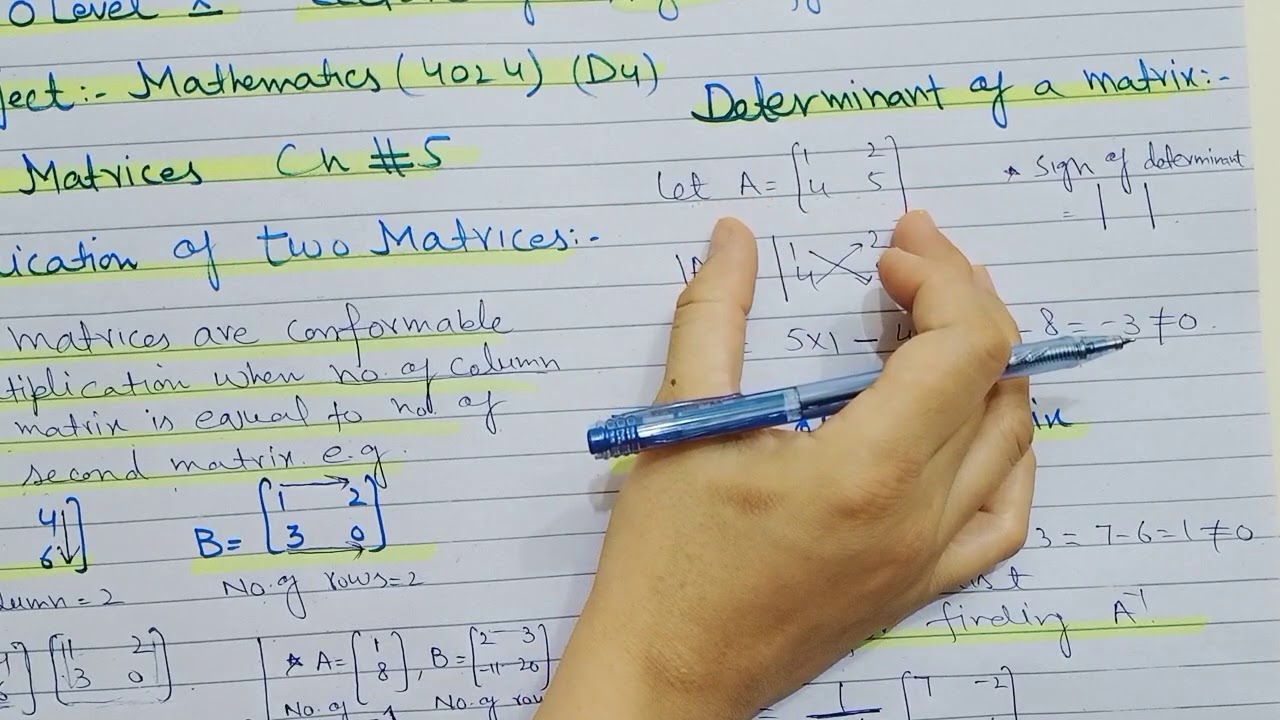 O Level
Mathematics (4024) (D4)
Matrices Ch #5
of two Matrices:-
matrices are conformable
when no. of column
matrix is equal to no. of
second matrix e.g.
4
6
B= [1 2
3 0]
= 2
No. of rows=2
[1 2
3 0]
* A= [1
8], B= [2 3
-11 20]
No. of
No. of
Determinant of a matrix:-
let A= [1 2
4 5]
* sign of determinant
= | |
|1 2
4
= 5x1 - 4 - 8 = -3 ≠0.
3 = 7-6=1 ≠0
finding A⁻¹
1 [7 -2]